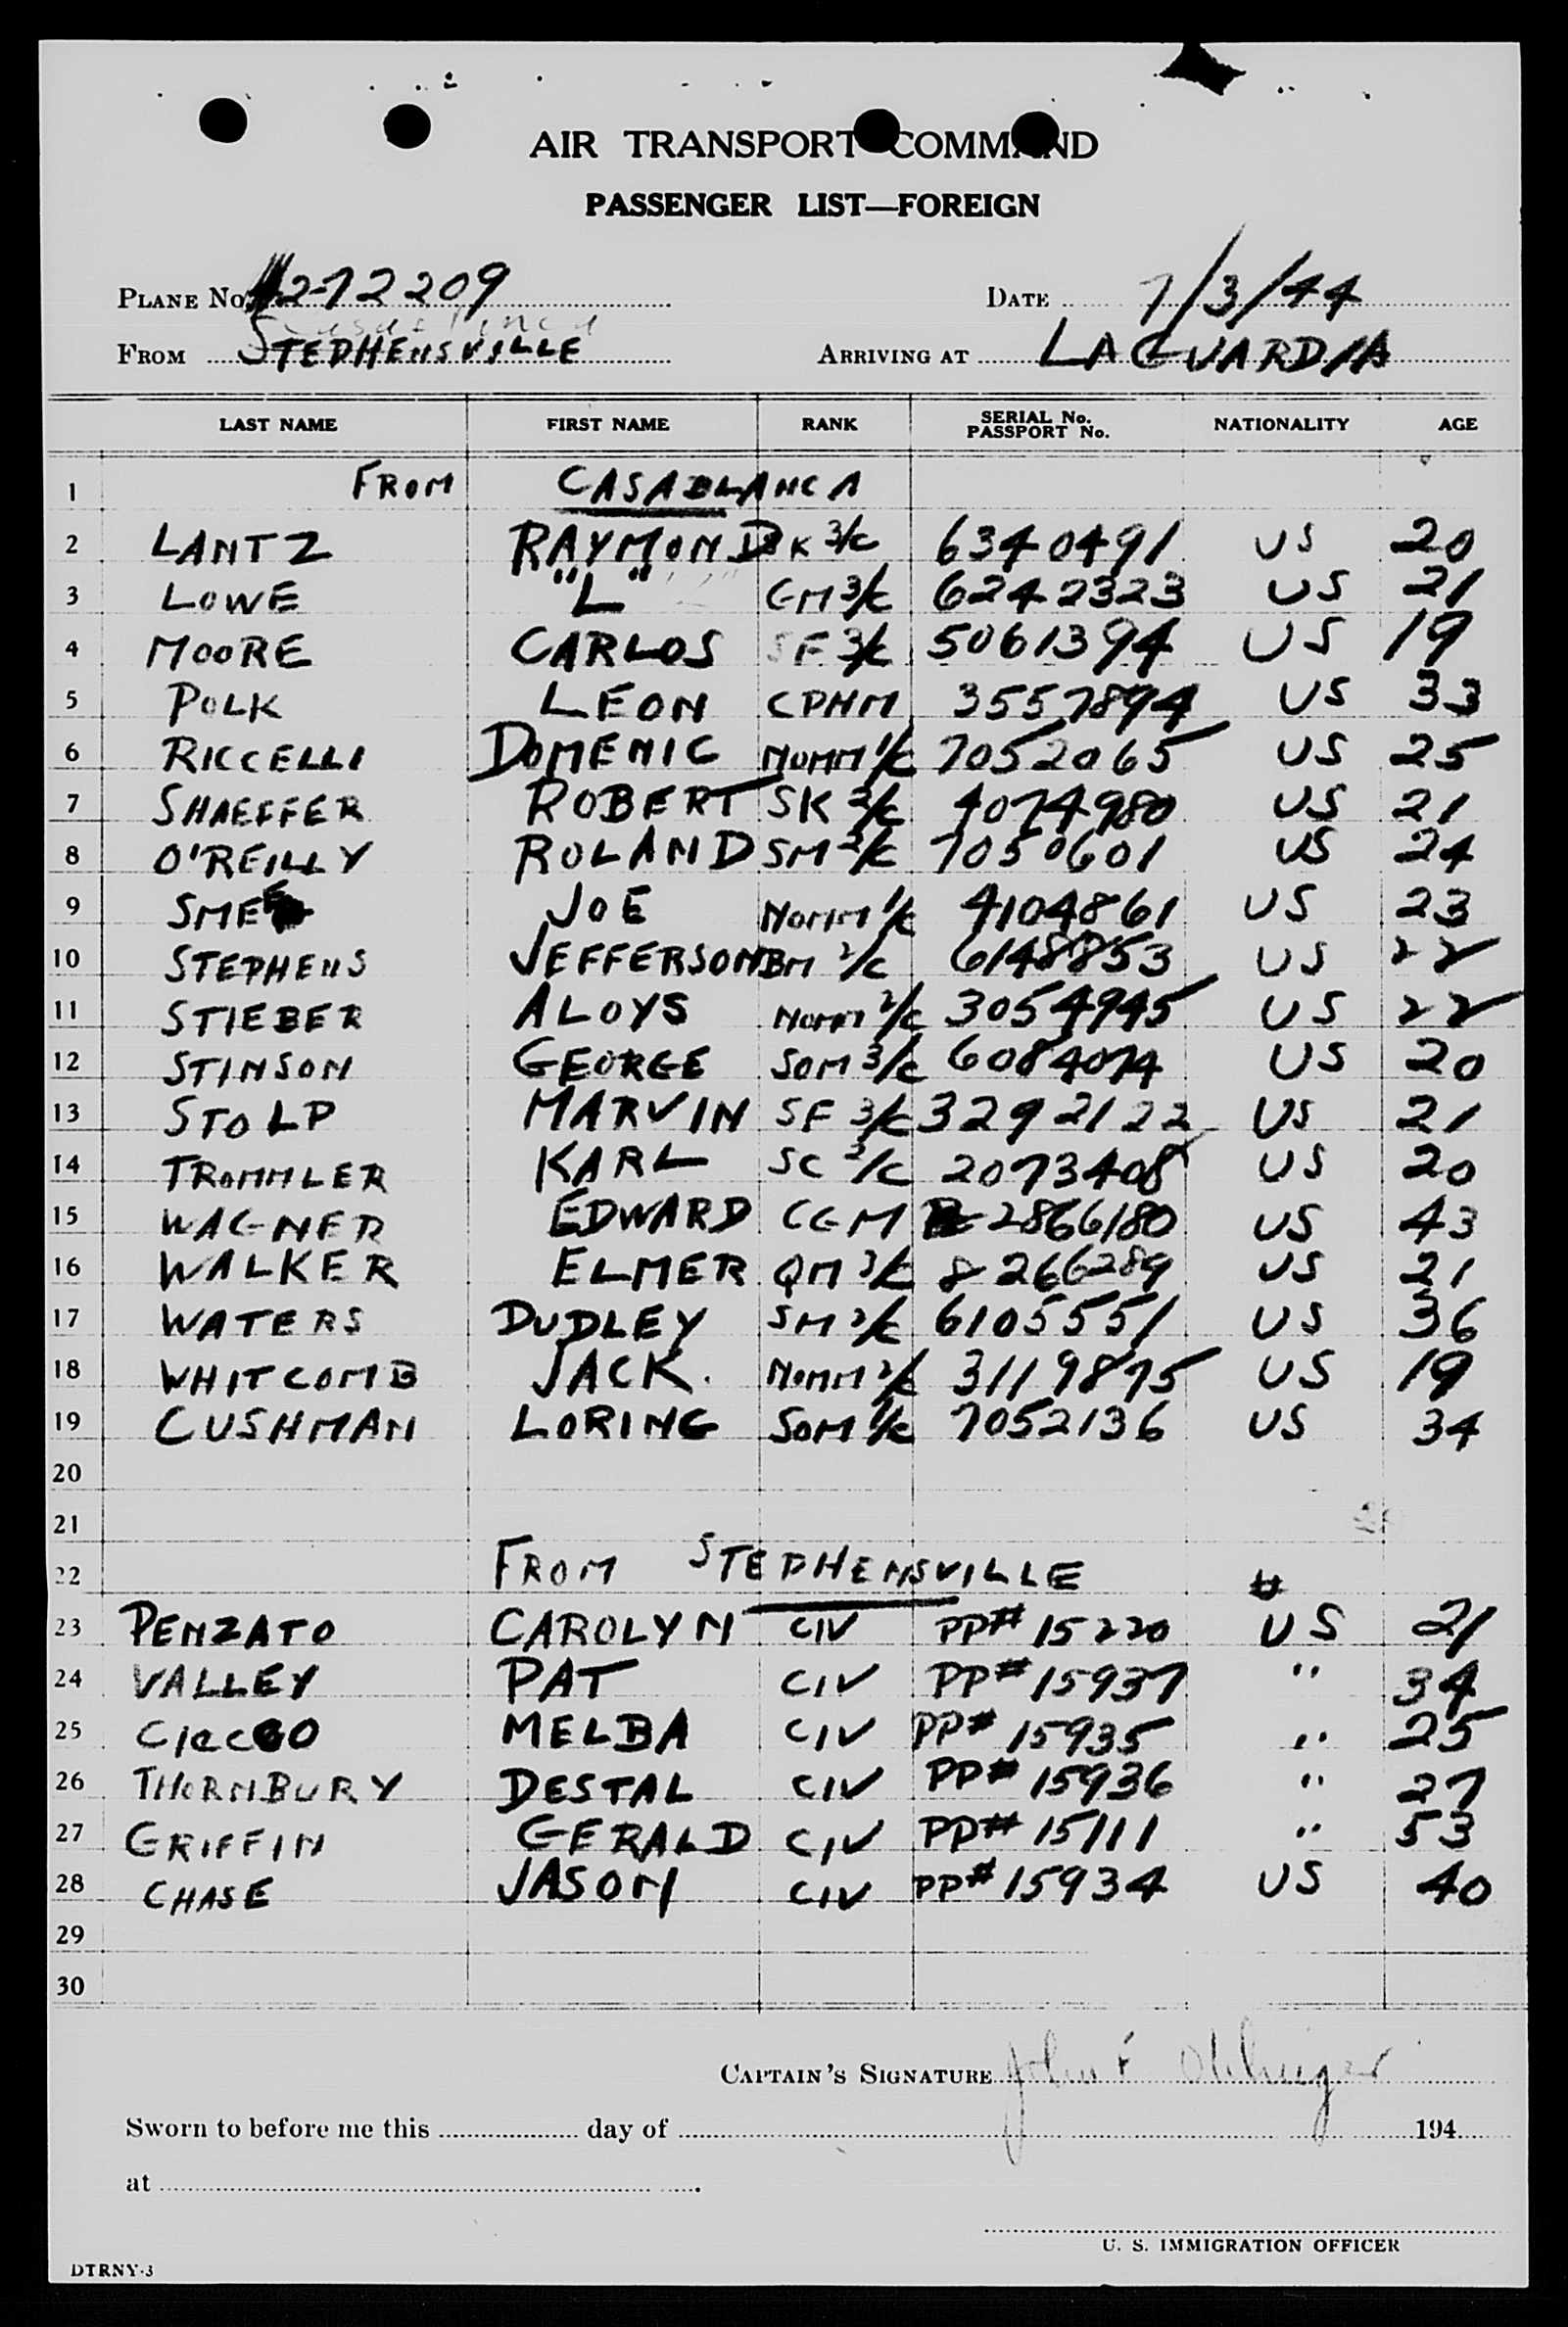 AIR TRANSPORT COMMAND
PASSENGER LIST—FOREIGN
PLANE No. 42-72209 DATE 7/3/44
FROM STEPHENSVILLE ARRIVING AT LAGUARDIA
LAST NAME FIRST NAME RANK SERIAL No. PASSPORT No. NATIONALITY AGE
1 FROM CASABLANCA
2 LANTZ RAYMOND 3/c 6340491 US 20
3 LOWE "L" GM 3/c 6242323 US 21
4 MOORE CARLOS SF 3/c 5061394 US 19
5 POLK LEON CPHM 3557894 US 33
6 RICCELLI DOMENIC MOMM 1/c 7052065 US 25
7 SHAEFFER ROBERT SK 2/c 4074980 US 21
8 O'REILLY ROLAND SM 2/c 7050601 US 24
9 SMEE JOE MOMM 1/c 4104861 US 23
10 STEPHENS JEFFERSON BM 2/c 6148853 US 22
11 STIEBER ALOYS MOMM 2/c 3054945 US 22
12 STINSON GEORGE SOM 3/c 6084074 US 20
13 STOLP MARVIN SF 3/c 3292122 US 21
14 TROMMLER KARL SC 2/c 2073408 US 20
15 WAGNER EDWARD CGM 2866180 US 43
16 WALKER ELMER QM 3/c 8266289 US 21
17 WATERS DUDLEY SM 2/c 6105551 US 36
18 WHITCOMB JACK. MOMM 2/c 3119875 US 19
19 CUSHMAN LORING SOM 1/c 7052136 US 34
20
21
22 FROM STEPHENSVILLE
23 PENZATO CAROLYN CIV PP# 15220 US 21
24 VALLEY PAT CIV PP# 15937 " 34
25 MELBA CIV PP# 15935 " 25
26 THORNBURY DESTAL CIV PP# 15936 " 27
27 GRIFFIN GERALD CIV PP# 15111 " 53
28 CHASE JASON CIV PP# 15934 US 40
29
30
CAPTAIN'S SIGNATURE John F
Sworn to before me this day of 194
at
U. S. IMMIGRATION OFFICER
DTRNY-3